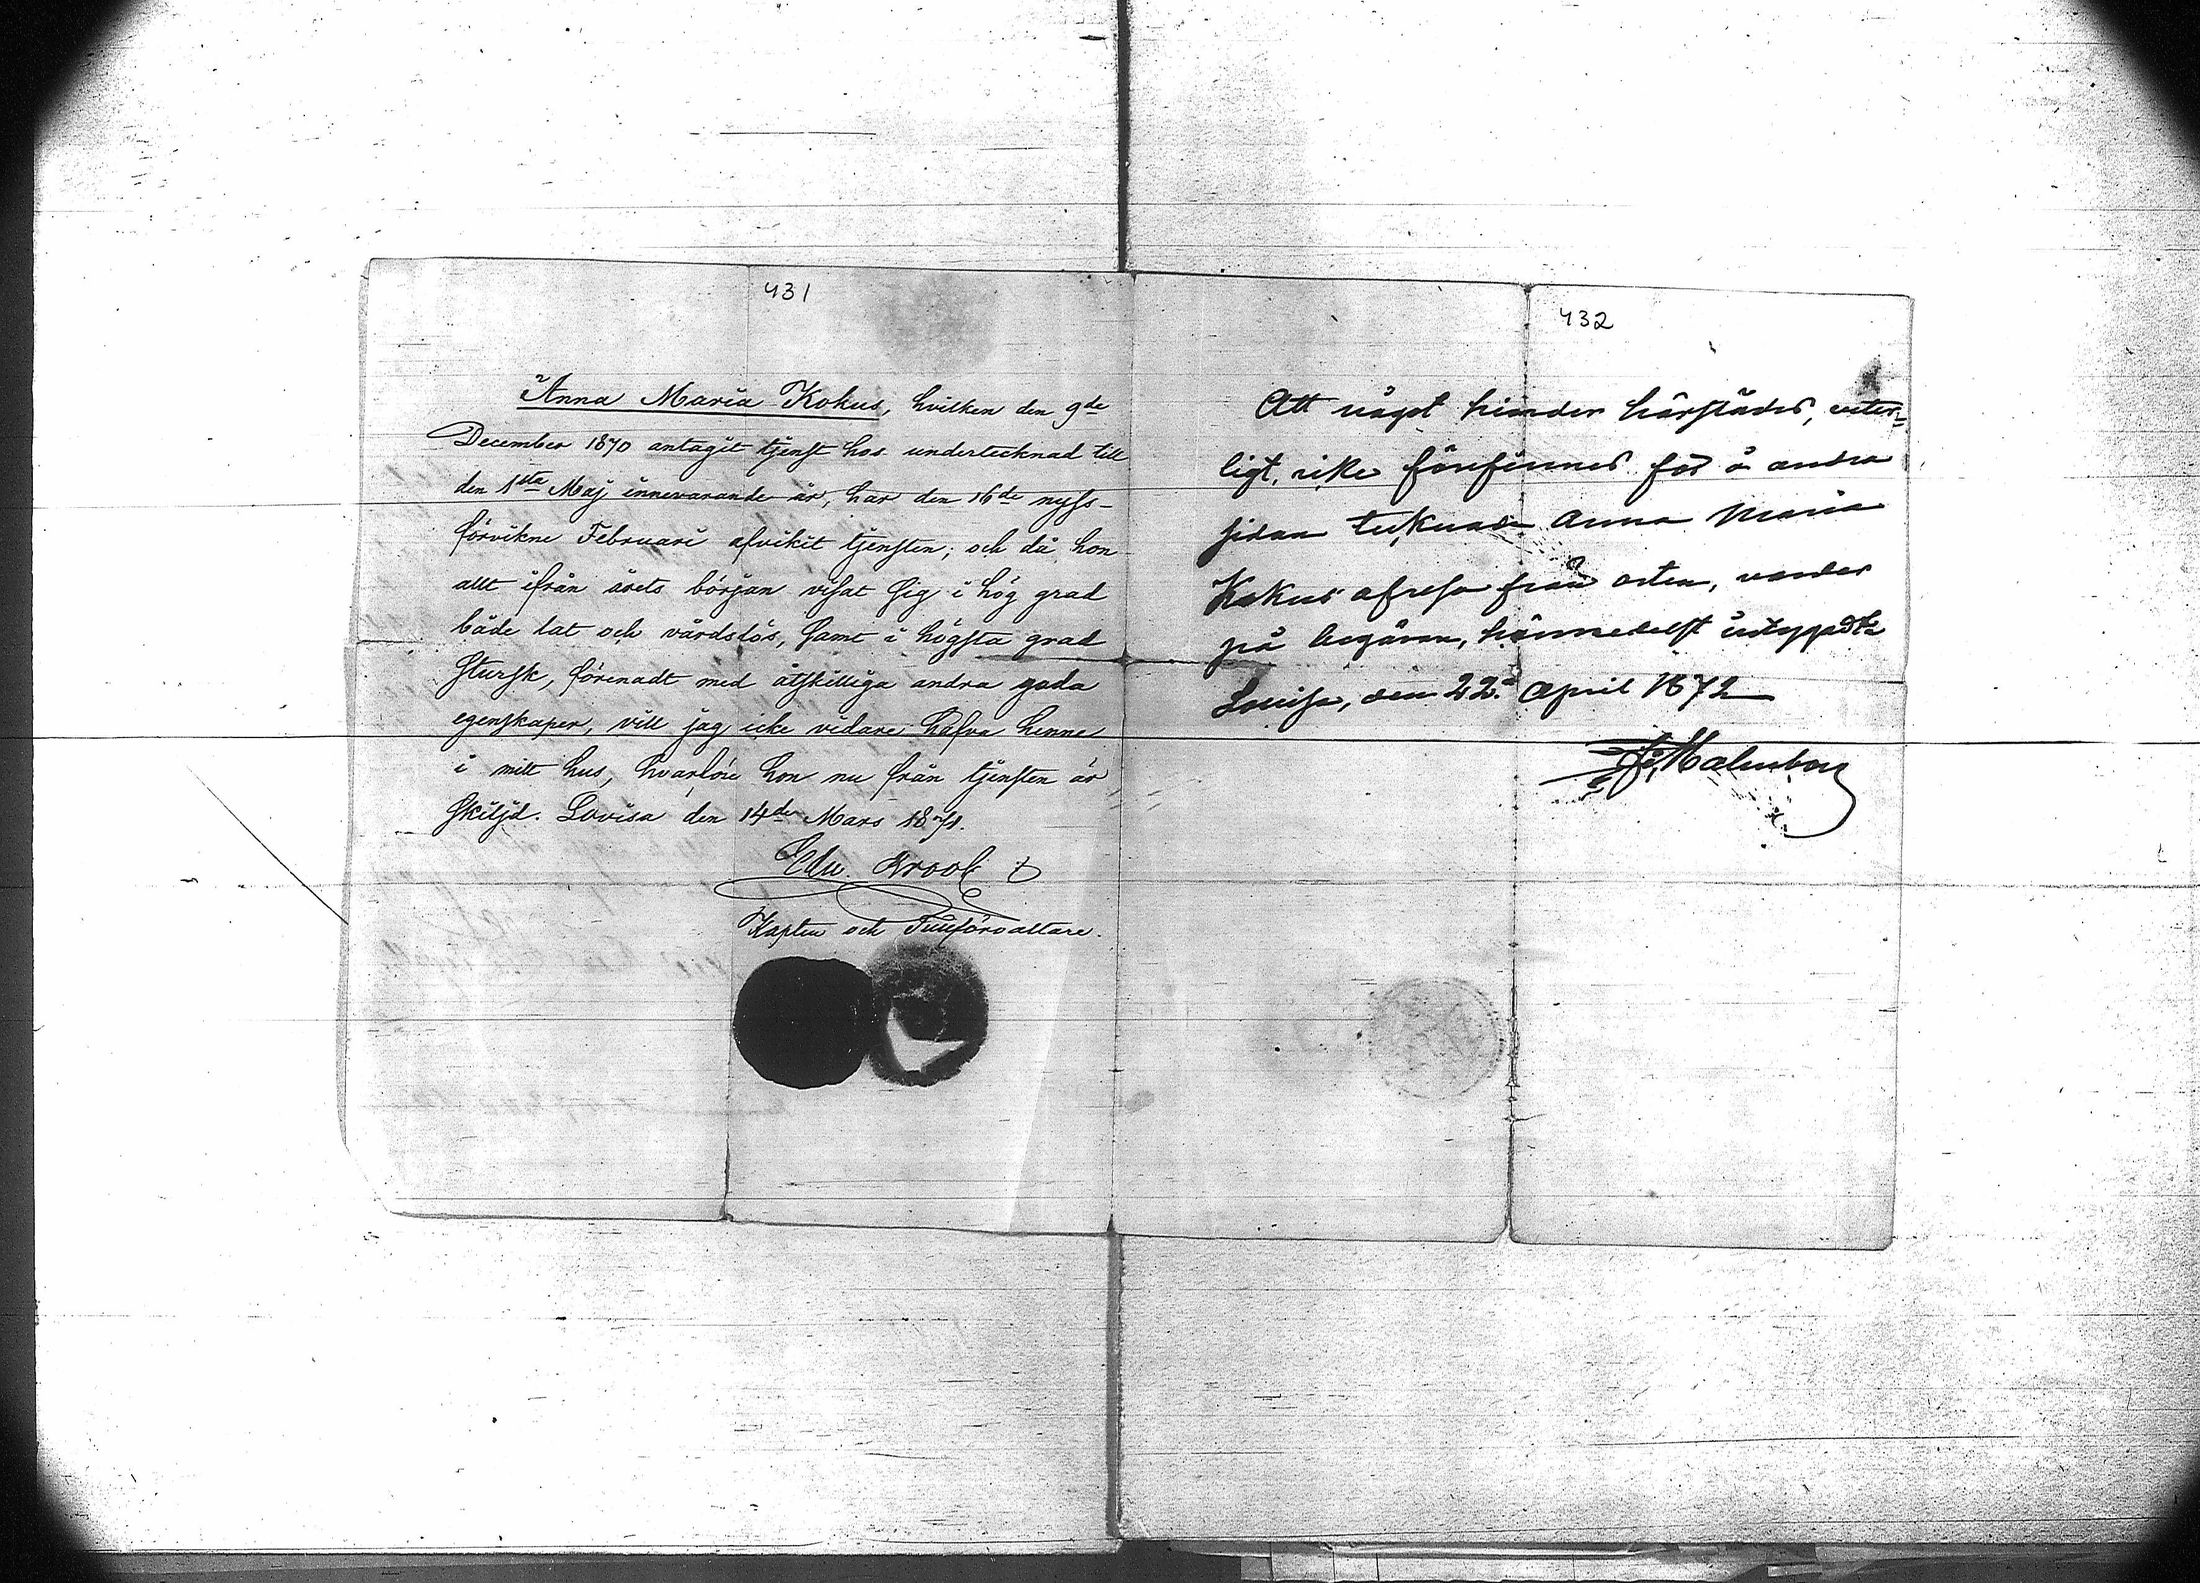 431
Anna Maria Kokus, hvilken den 9de
December 1870 antagit tjenst hos undertecknad till
den 1sta Maj innevarande år, har den 16de nyss-
förvikne Februari afvikit tjensten; och då hon
allt ifrån årets början visat sig i hög grad
både lat och vårdslös, samt i högsta grad
stursk, förenadt med åtskilliga andra goda
egenskaper, vill jag icke vidare hafva henne
i mitt hus, hvarföre hon nu från tjensten är
skiljd. Lovisa den 14de Mars 1871.
Edv.
Kapten och Tullförvaltare.
432
Att något hinder härstädes, veter-
ligt, icke förefinnes för å andra
sidan Anna Maria
Kokus afresa från orten, varder
på begäran, härmedelst
Lovisa, den 22a April 1872
Malmborg